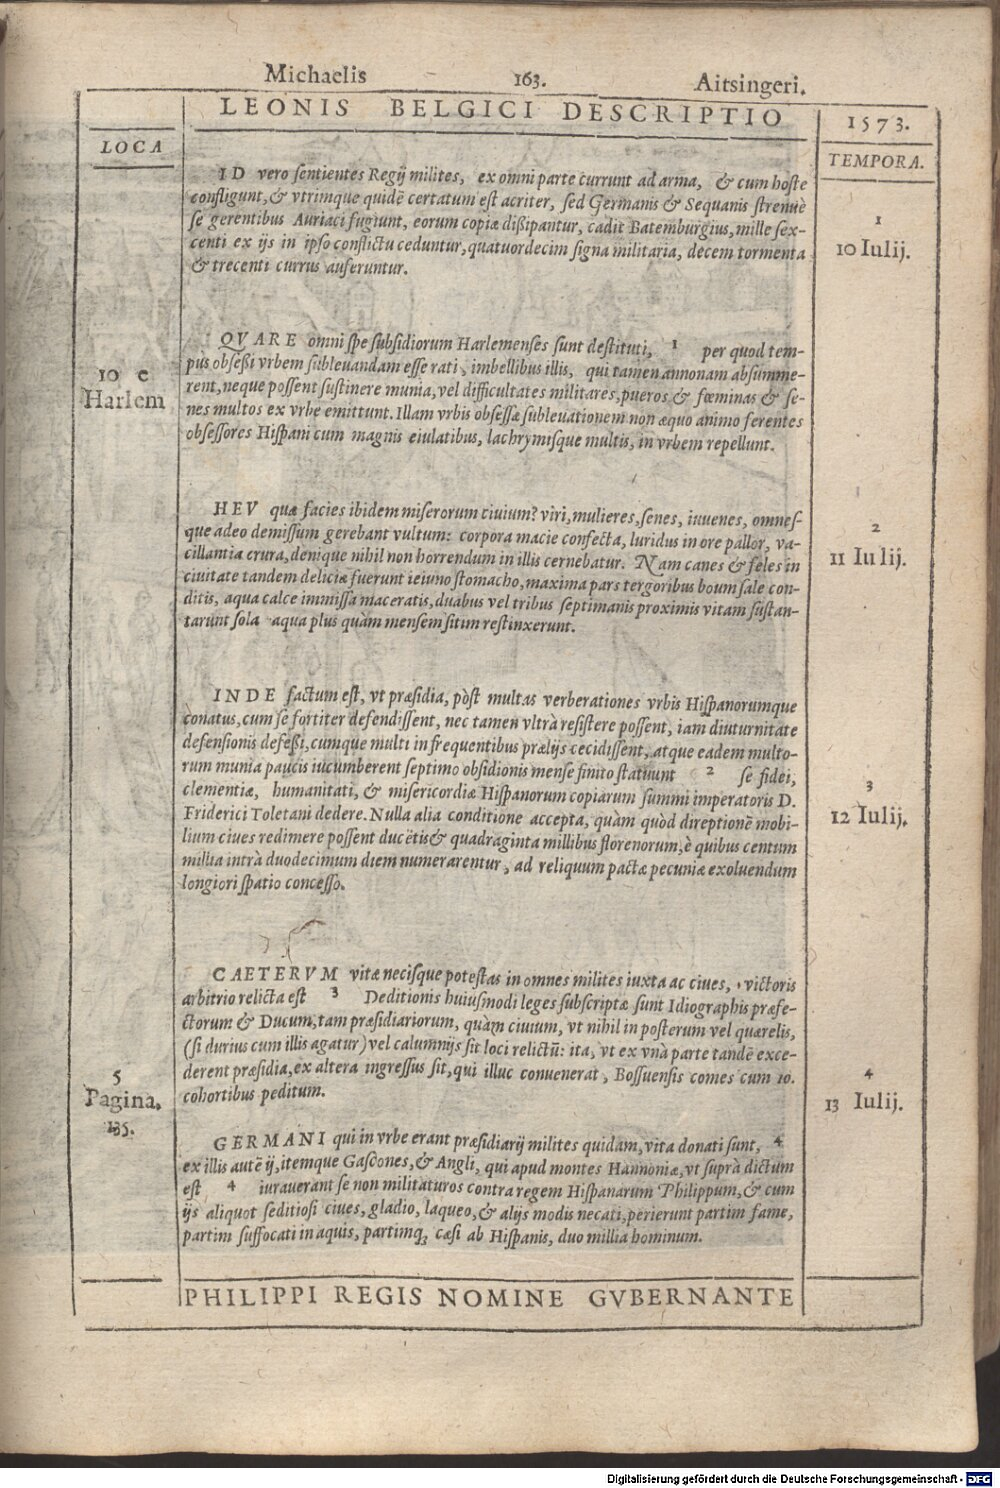 Michaelis 163. Aitsingeri.
LEONIS BELGICI DESCRIPTIO
1573.
LOCA
TEMPORA.
ID vero sentientes Regij milites, ex omni parte currunt ad arma, & cum hoste
confligunt, & vtrimque quidē certatum est acriter, sed Germanis & Sequanis strenuè
se gerentibus Auriaci fugiunt, eorum copiæ dißipantur, cadit Batemburgius, mille sex-
centi ex ijs in ipso conflictu ceduntur, quatuordecim signa militaria, decem tormenta
& trecenti currus auferuntur.
1
10 Iulij.
QVARE omni spe subsidiorum Harlemenses sunt destituti, 1 per quod tem-
pus obseßi vrbem subleuandam esse rati, imbellibus illis, qui tamen annonam absumme-
rent, neque possent sustinere munia, vel difficultates militares, pueros & fœminas & se-
nes multos ex vrbe emittunt. Illam vrbis obsessæ subleuationem non æquo animo ferentes
obsessores Hispani cum magnis eiulatibus, lachrymisque multis, in vrbem repellunt.
10 e
Harlem
HEV quæ facies ibidem miserorum ciuium? viri, mulieres, senes, iuuenes, omnes-
que adeo demissum gerebant vultum: corpora macie confecta, luridus in ore pallor, va-
cillantia crura, denique nihil non horrendum in illis cernebatur. Nam canes & feles in
ciuitate tandem deliciæ fuerunt ieiuno stomacho, maxima pars tergoribus boum sale con-
ditis, aqua calce immissa maceratis, duabus vel tribus septimanis proximis vitam sustan-
tarunt sola aqua plus quàm mensem sitim restinxerunt.
2
11 Iulij.
INDE factum est, vt præsidia, pòst multas verberationes vrbis Hispanorumque
conatus, cum se fortiter defendissent, nec tamen vltrà resistere possent, iam diuturnitate
defensionis defeßi, cumque multi in frequentibus prælijs cecidissent, atque eadem multo-
rum munia paucis iucumberent septimo obsidionis mense finito statuunt 2 se fidei,
clementiæ, humanitati, & misericordiæ Hispanorum copiarum summi imperatoris D.
Friderici Toletani dedere. Nulla alia conditione accepta, quàm quòd direptionē mobi-
lium ciues redimere possent ducētis & quadraginta millibus florenorum, è quibus centum
millia intrà duodecimum diem numerarentur, ad reliquum pactæ pecuniæ exoluendum
longiori spatio concesso.
3
12 Iulij.
CAETERVM vitæ necisque potestas in omnes milites iuxta ac ciues, victoris
arbitrio relicta est 3 Deditionis huiusmodi leges subscriptæ sunt Idiographis præfe-
ctorum & Ducum, tam præsidiariorum, quàm ciuium, vt nihil in posterum vel quærelis,
(si durius cum illis agatur) vel calumnijs sit loci relictū: ita, vt ex vnà parte tandē exce-
derent præsidia, ex altera ingressus sit, qui illuc conuenerat, Bossuensis comes cum 10.
cohortibus peditum.
5
Pagina.
135.
4
13 Iulij.
GERMANI qui in vrbe erant præsidiarij milites quidam, vita donati sunt, 4
ex illis autē ij, itemque Gascones, & Angli, qui apud montes Hannoniæ, vt suprà dictum
est 4 iurauerant se non militaturos contra regem Hispanarum Philippum, & cum
ijs aliquot seditiosi ciues, gladio, laqueo, & alijs modis necati, perierunt partim fame,
partim suffocati in aquis, partimq; cæsi ab Hispanis, duo millia hominum.
PHILIPPI REGIS NOMINE GVBERNANTE
Digitalisierung gefördert durch die Deutsche Forschungsgemeinschaft - DFG